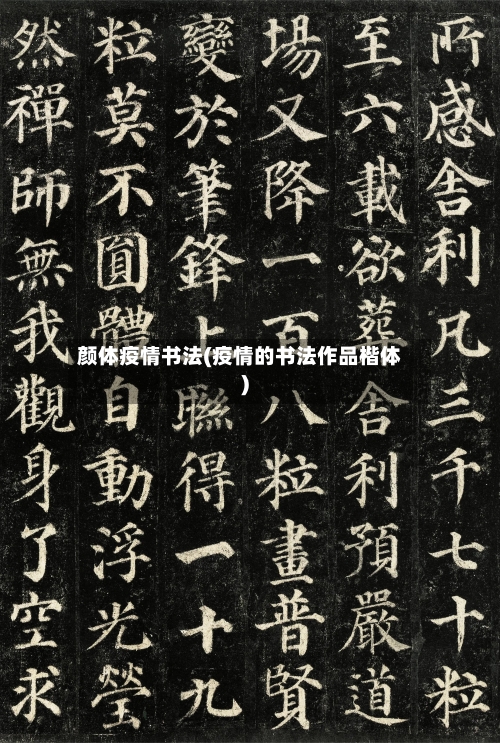 所感舍利凡三千七十粒
至六載欲葬舍利預嚴道
場又降一百八粒畫普賢
變於筆鋒上聯得一十九
粒莫不圓體自動浮光瑩
然禪師無我觀身了空求
颜体疫情书法(疫情的书法作品楷体
)